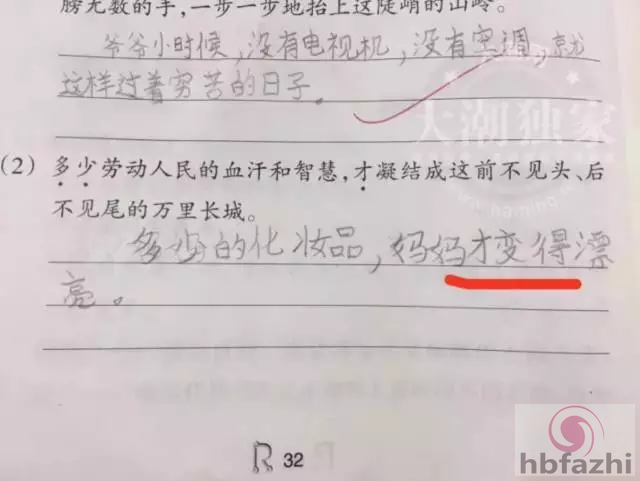 膀无数的手，一步一步地抬上这陡峭的山岭。
爷爷小时候，没有电视机，没有空调，就
这样过着穷苦的日子。
大潮独家
(2) 多少劳动人民的血汗和智慧，才凝结成这前不见头、后
不见尾的万里长城。
多少的化妆品，妈妈才变得漂
亮。
R 32
hbfazhi